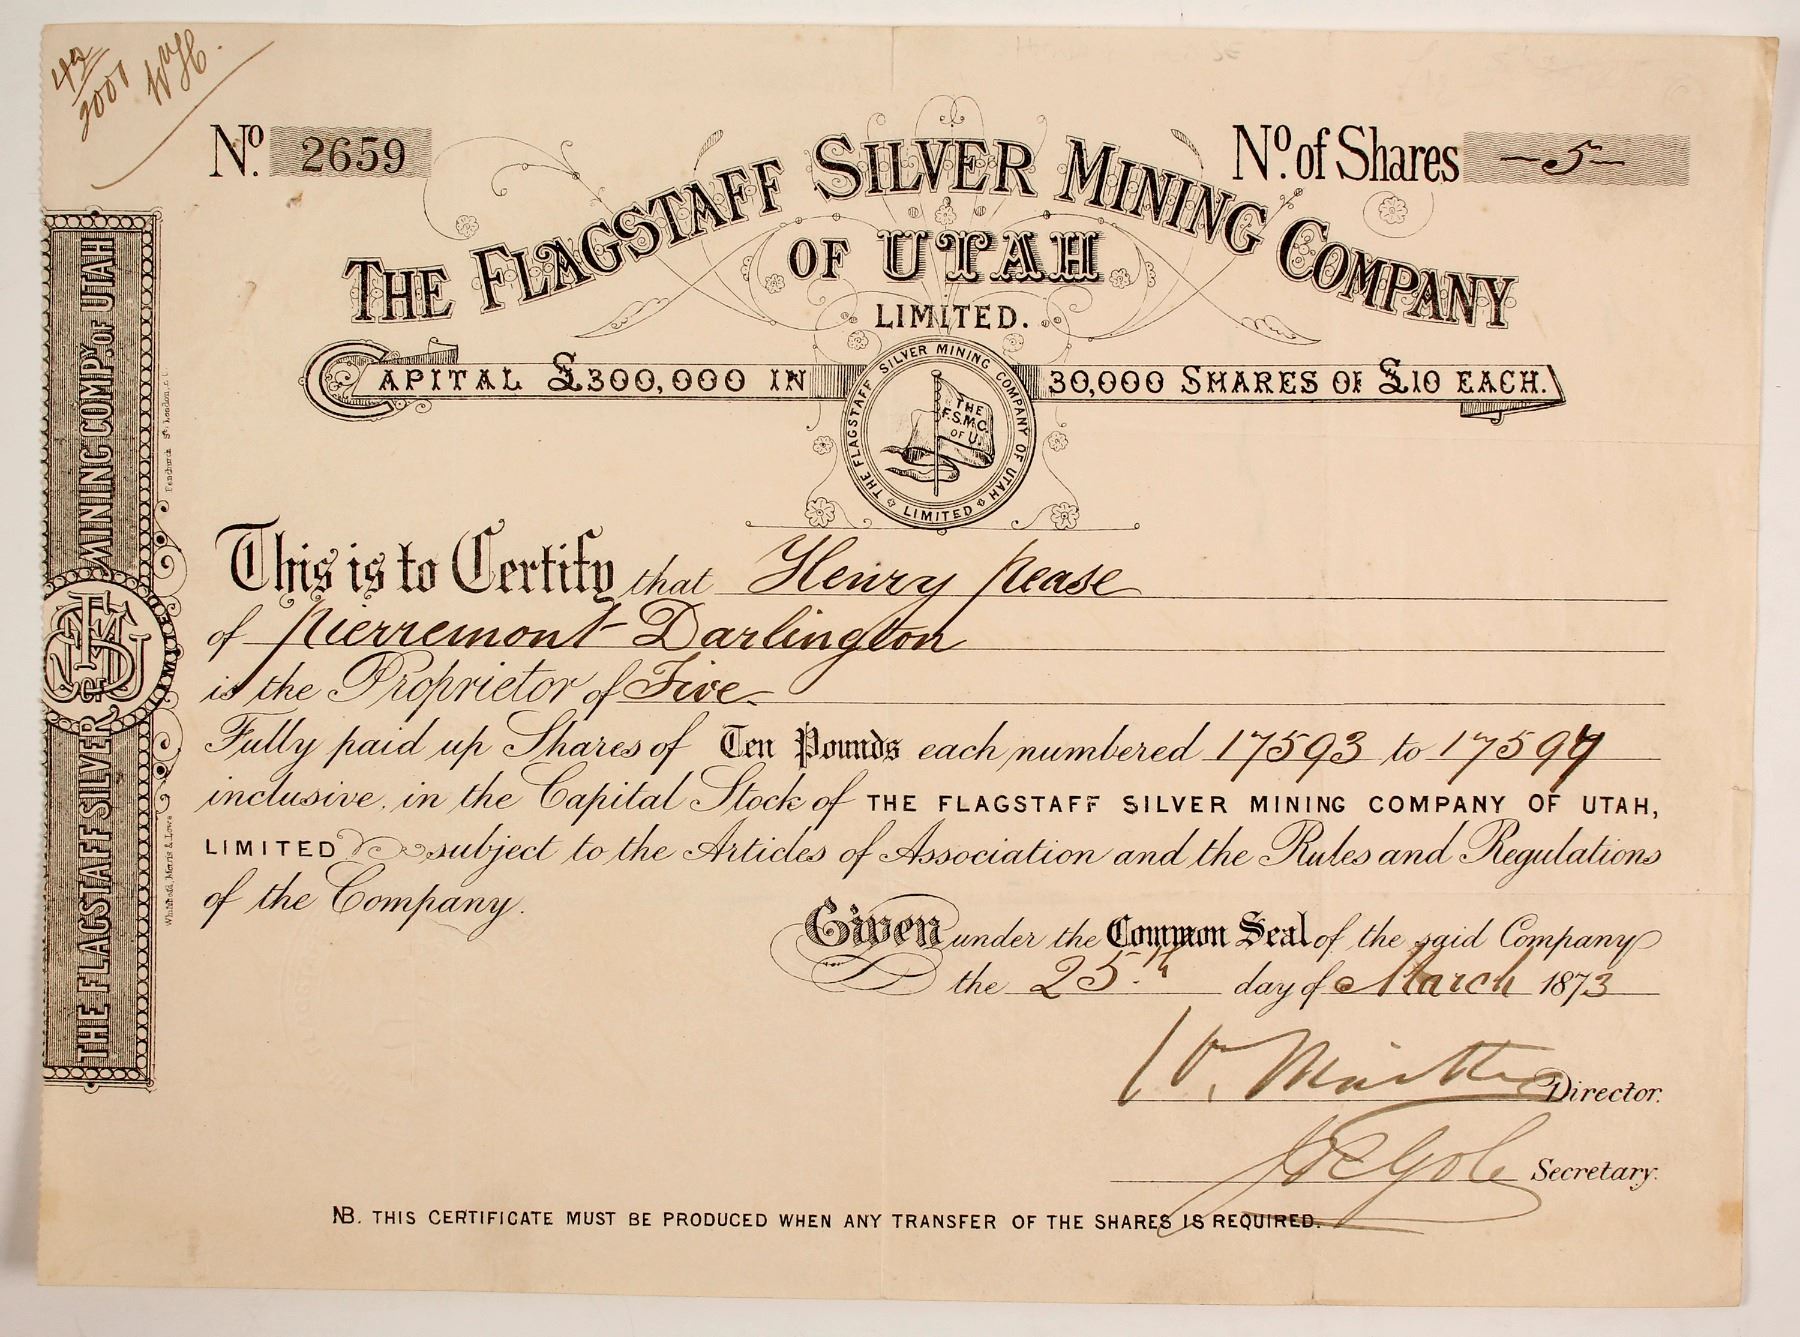 42
2001 WH.
No. 2659
No. of Shares —5—
THE FLAGSTAFF SILVER MINING COMPANY
OF UTAH
LIMITED.
CAPITAL £300,000 IN 30,000 SHARES OF £10 EACH.
THE FLAGSTAFF SILVER MINING COMPANY OF UTAH
LIMITED
THE
F.S.M.C.
OF U.
THE FLAGSTAFF SILVER MINING COMPY. OF UTAH
LIMITED
Fenchurch St. London, E.C.
This is to Certify that Henry Pease
of Pierremont Darlington
is the Proprietor of Five
Fully paid up Shares of Ten Pounds each numbered 17593 to 17597
inclusive, in the Capital Stock of THE FLAGSTAFF SILVER MINING COMPANY OF UTAH,
LIMITED subject to the Articles of Association and the Rules and Regulations
of the Company.
Given under the Common Seal of the said Company
the 25th day of March 1873
Director.
Secretary.
NB. THIS CERTIFICATE MUST BE PRODUCED WHEN ANY TRANSFER OF THE SHARES IS REQUIRED.